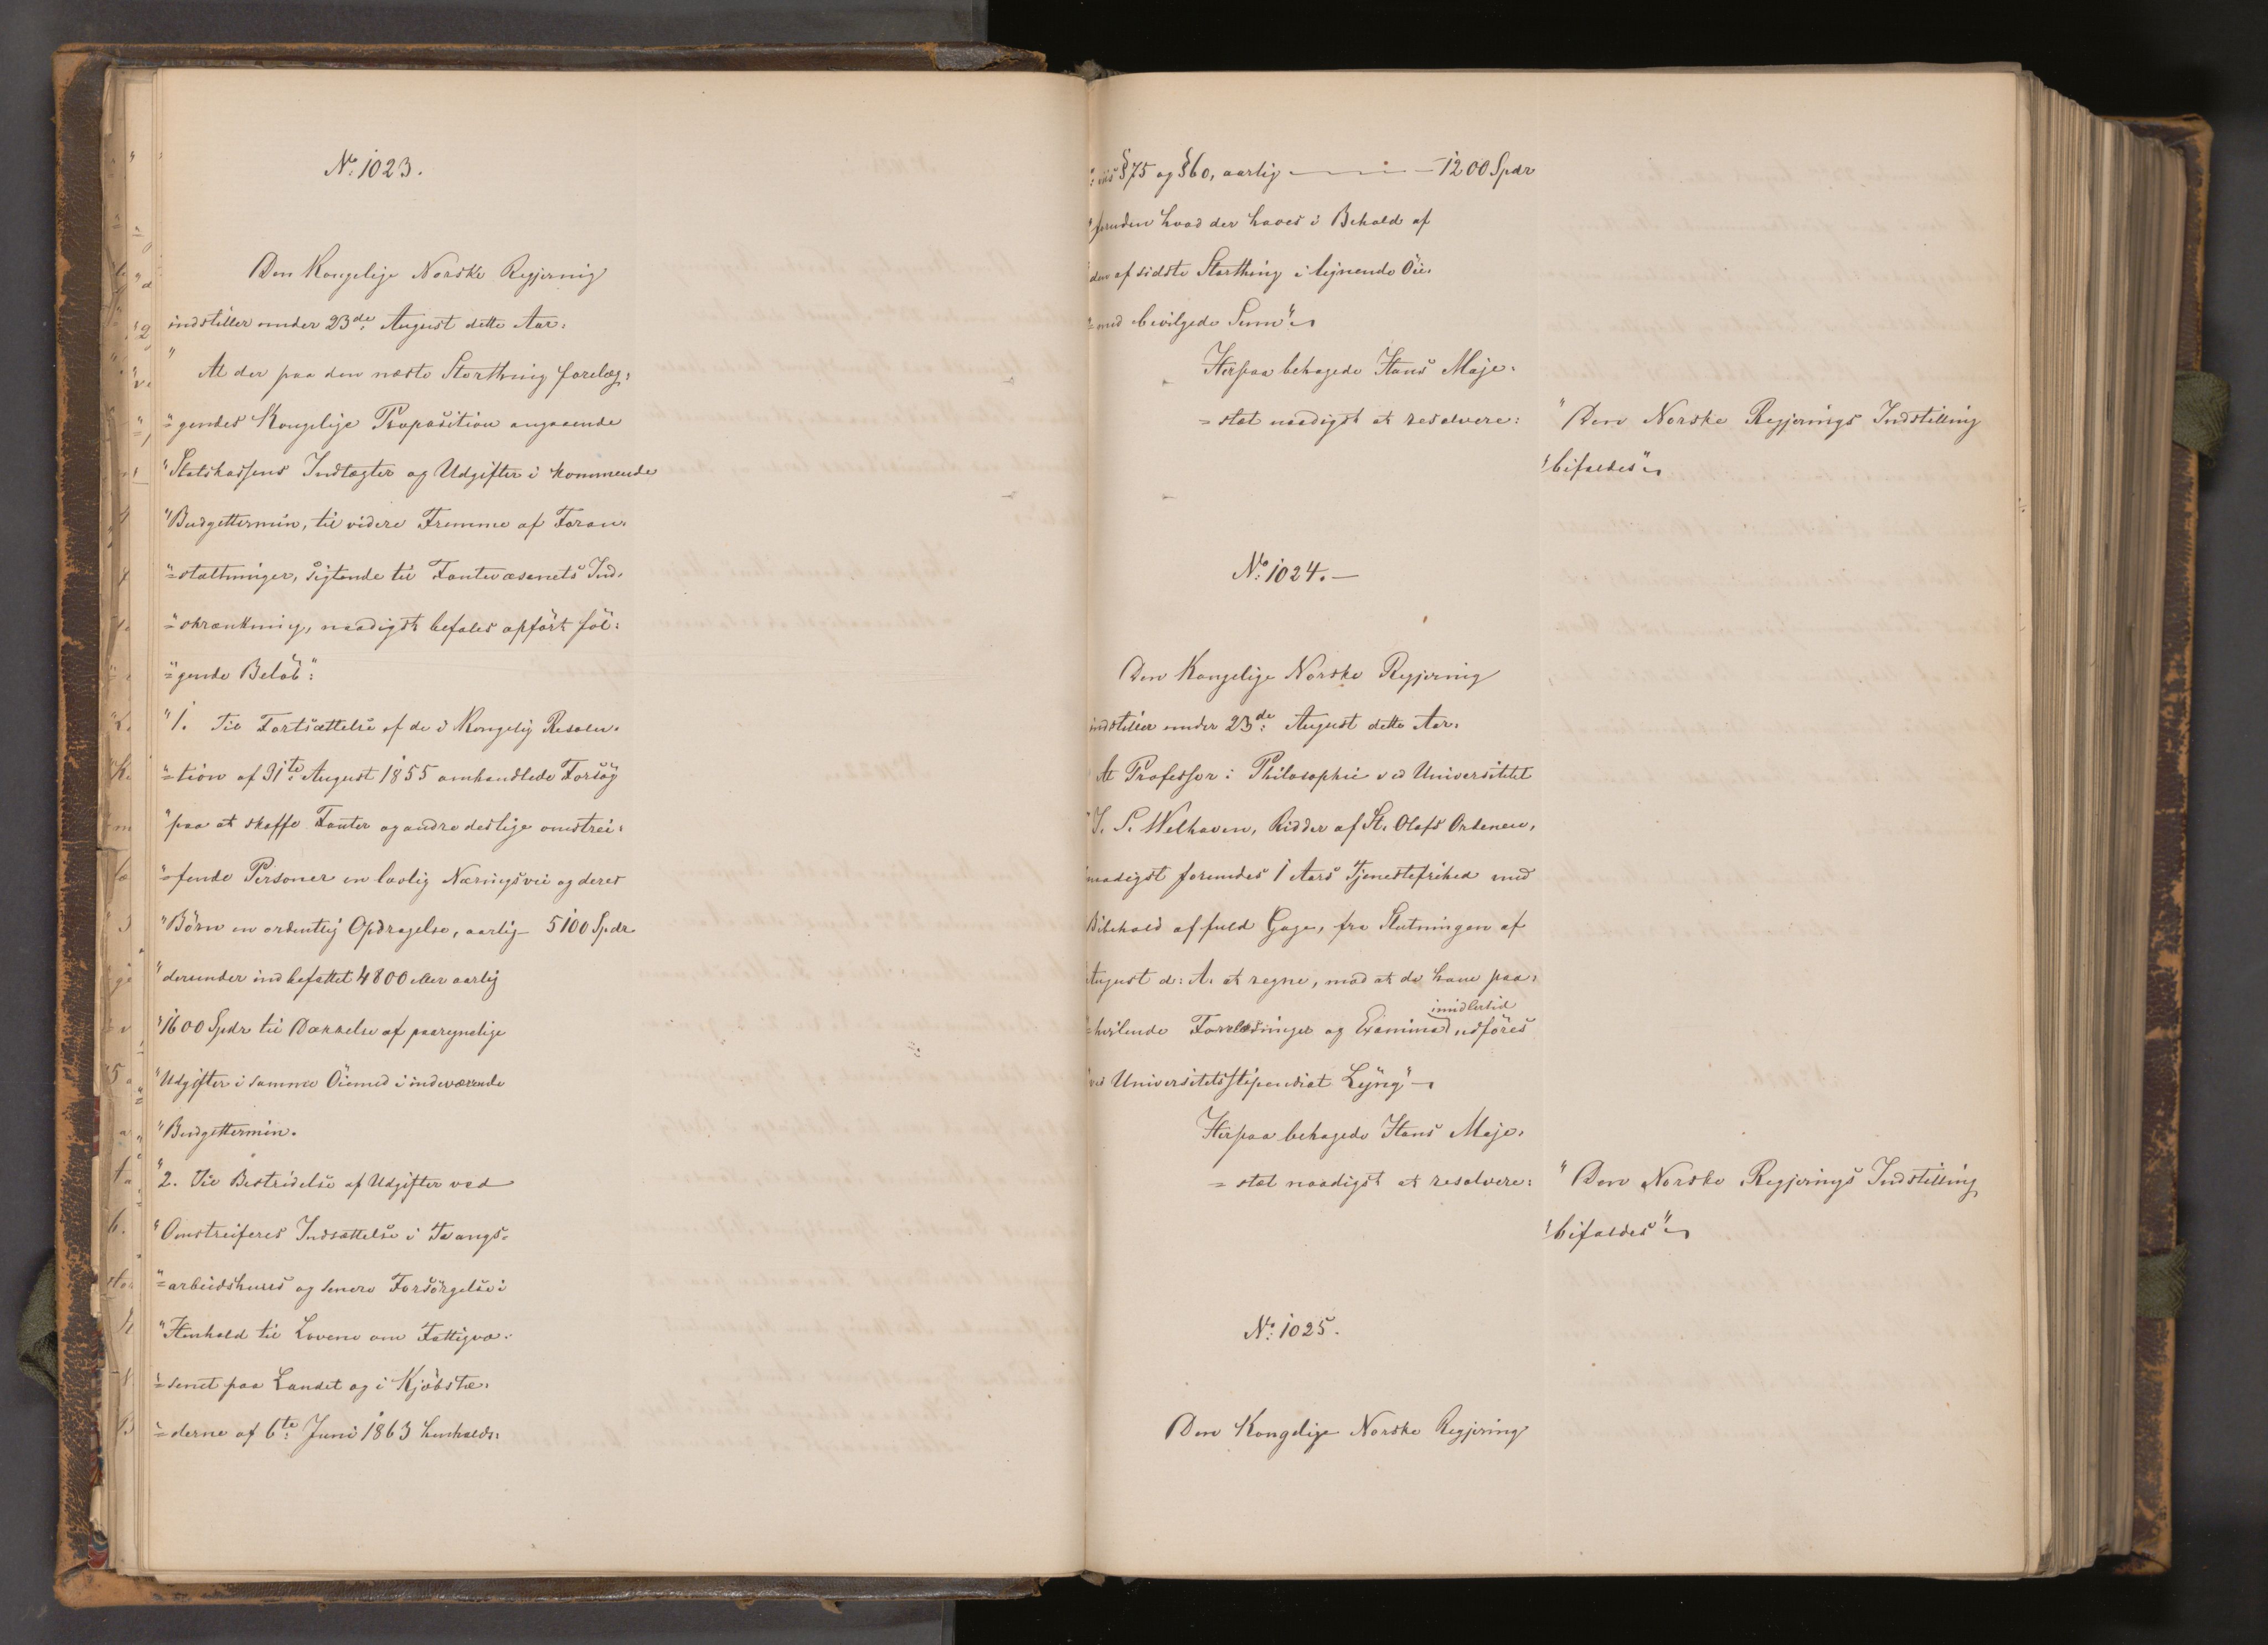 No. 1023.
Den Kongelige Norske Regjering
indstiller under 23de August dette Aar:
" At der paa den næste Storthing forelæg:
"=gendes Kongelige Proposition angaaende
"Statskassens Indtægter og Udgifter i kommende
"Budgettermin, til videre Fremme af Foran=
"=staltninger, sigtende til Fantevæsenets Ind=
"=skrænkning, naadigst befales opført föl:
"=gende Belöb":
"1. Til Fortsættelse af de i Kongelig Resolu=
"=tion af 31te August 1855 omhandlede Forsög
"paa at skaffe Fanter og andre deslige omstrei=
"=fende Personer en lovlig Næringsvei og deres
"Börn en ordentlig Opdragelse, aarlig - 5100 Spdr
"derunder indbefattet 4800 eller aarlig
"1600 Spdr til Dækkelse af paaregnelige
"Udgifter i samme Öiemed i indeværende
"Budgettermin.
"2. Til Bestridelse af Udgifter ved
"Omstreiferes Indsættelse i Tvangs=
"=arbeidshuus og senere Forsörgelse i
"Henhold til Lovene om Fattigvæ=
"=senet paa Landet og i Kjöbstæ=
"=derne af 6te Juni 1863 henholds=
"=viis §75 og §60, aarlig — 1200 Spdr
"foruden hvad der haves i Behold af
"den af sidste Storthing i lignende Öie=
"=med bevilgede Sum"
Herpaa behagede Hans Maje=
=stæt naadigst at resolvere:
"Den Norske Regjerings Indstilling
"bifaldes"
No. 1024. —
Den Kongelige Norske Regjering
indstiller under 23de August dette Aar:
"At Professor i Philosophie ved Universitetet
"J. S. Welhaven, Ridder af St. Olafs Ordenen,
"naadigst forundes 1 Aars Tjenestefrihed med
"Bibehold af fuld Gage, fra Slutningen af
"August d: A. at regne, mod at de ham paa=
imidlertid
"=hvilende Forelæsninger og Examina udföres
"ved Universitetsstipendiat Lyng" —
Herpaa behagede Hans Maje=
=stæt naadigst at resolvere:
"Den Norske Regjerings Indstilling
"bifaldes"
No. 1025.
Den Kongelige Norske Regjering